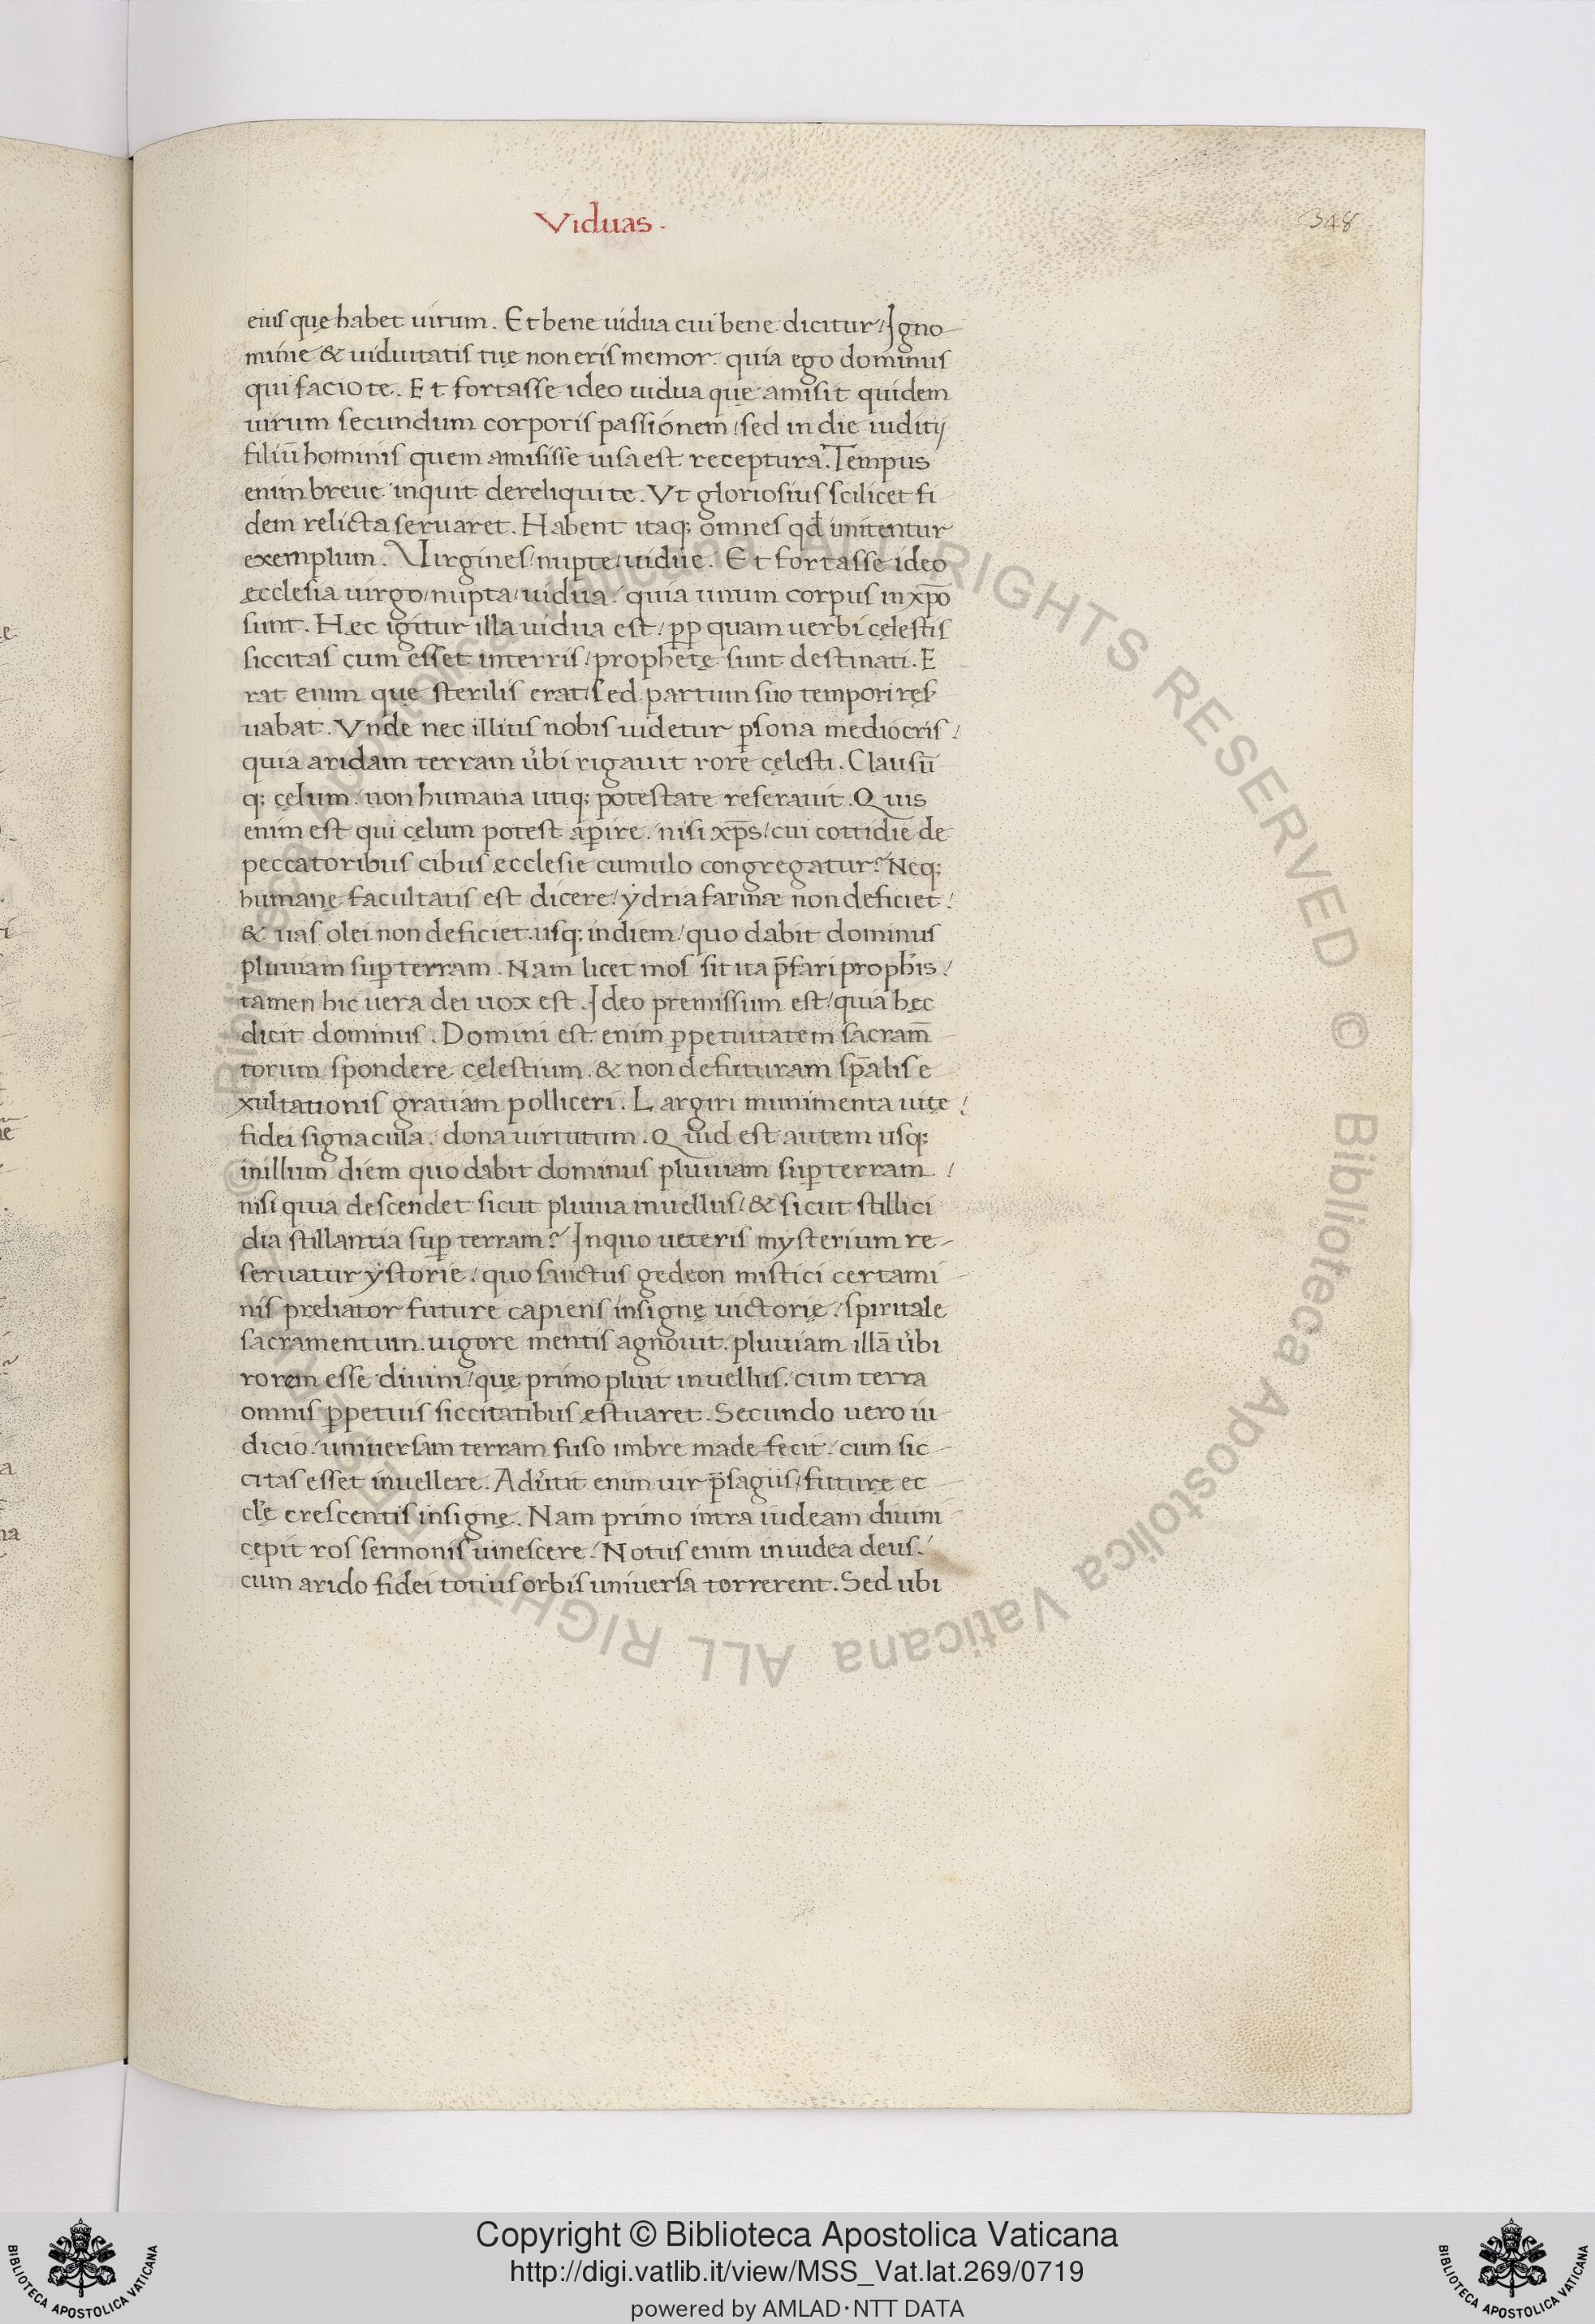 Viduas.
348
eius quę habet uirum. Et bene uidua cui bene dicitur/ Igno
minie & uiduitatis tuę non eris memor. quia ego dominus
qui facio te. Et fortasse ideo uidua quę amisit quidem
uirum secundum corporis passionem/ sed in die iuditij
filiū hominis quem amisisse uisa est receptura. Tempus
enim breue inquit dereliqui te. Vt gloriosius scilicet fi
dem relicta seruaret. Habent itaq; omnes qđ imitentur
exemplum. Virgines/ nupte/ uidue. Et fortasse ideo
ęcclesia uirgo/ nupta/ uidua. quia unum corpus in xp̄o
sunt. Hęc igitur illa uidua est/ ꝓp quam uerbi cęlestis
siccitas cum esset in terris/ prophetę sunt destinati. E
rat enim quę sterilis erat/ sed partum suo tempori res
uabat. Vnde nec illius nobis uidetur ꝑsona mediocris/
quia aridam terram u̓bi rigauit rore cęlesti. Clausū
q; cęlum. non humana utiq; potestate reserauit. Quis
enim est qui cęlum potest aꝑire. nisi xp̄s/ cui cottidie de
peccatoribus cibus ęcclesie cumulo congregatur? Neq;
humanę facultatis est dicere/ ẏdria farinæ non deficiet/
& uas olei non deficiet usq; in diem/ quo dabit dominus
pluuiam suꝑ terram. Nam licet mos sit ita p̄fari proph̓is/
tamen hic uera dei uox est. Ideo premissum est/ quia hęc
dicit dominus. Domini est enim ꝑpetuitatem sacram̄
torum spondere cęlestium. & non defuturam sp̄alis e
xultationis gratiam polliceri. Largiri munimenta uitę/
fidei signacula. dona uirtutum. Quid est autem usq;
in illum diem quo dabit dominus pluuiam suꝑ terram/
nisi quia descendet sicut pluuia in uellus/ & sicut stillici
dia stillantia suꝑ terram? In quo ueteris mysterium re-
seruatur ẏstorie/ quo sanctus gedeon mistici certami
nis preliator future capiens insignę uictorię/ spiritale
sacramentum uigore mentis agnouit. pluuiam illā u̓bi
rorem esse diuini/ quę primo pluit in uellus. cum terra
omnis ꝑpetuis siccitatibus ęstuaret. Secundo uero iu
dicio. uniuersam terram fuso imbre madefecit. cum sic
citas esset in uellere. Adu̓tit enim uir p̄sagiis/ futurę ec
cl̓e crescentis insignę. Nam primo intra iudeam diuini
cępit ros sermonis uinescere. Notus enim in iudea deus.
cum arido fidei totius orbis uniuersa torrerent. Sed ubi
© Biblioteca Apostolica Vaticana ALL RIGHTS RESERVED © Biblioteca Apostolica Vaticana ALL RIGHTS RESERVED
Copyright © Biblioteca Apostolica Vaticana
http://digi.vatlib.it/view/MSS_Vat.lat.269/0719
powered by AMLAD·NTT DATA
BIBLIOTECA APOSTOLICA VATICANA
BIBLIOTECA APOSTOLICA VATICANA